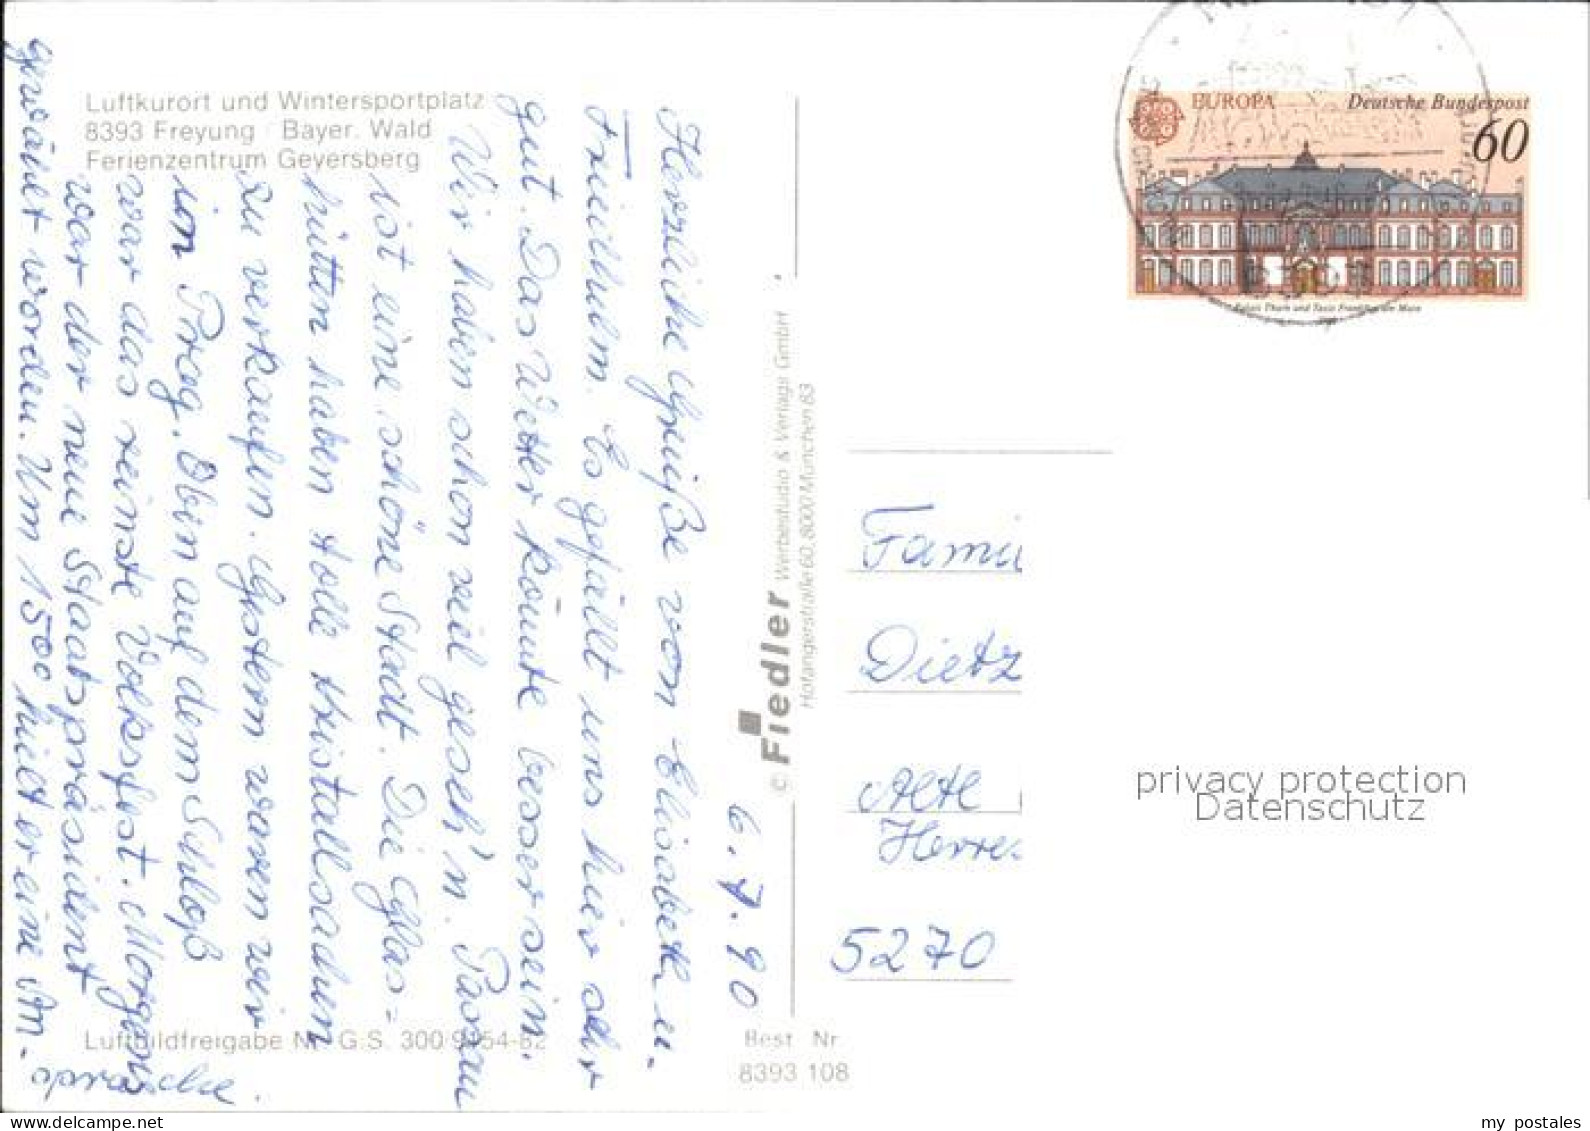 Luftkurort und Wintersportplatz
8393 Freyung Bayer. Wald
Ferienzentrum Geyersberg
EUROPA
Deutsche Bundespost
60
Palais Thurn und Taxis Frankfurt am Main
6.7.90
Herzliche Grüße von Elisabeth u.
Friedhelm. Es gefällt uns hier sehr
gut. Das Wetter könnte besser sein.
Wir haben schon viel geseh'n. Passau
ist eine schöne Stadt. Die Glas=
hütten haben tolle Kristallsachen
zu verkaufen. Gestern waren wir
in Prag. Oben auf dem Schloß
war das reinste Volksfest. Morgens
war der neue Staatspräsident
gewählt worden. Um 1500 hielt er eine An-
sprache.
© Fiedler Werbestudio & Verlags GmbH
Hofangerstraße 60, 8000 München 83
Dietz
5270
privacy protection
Datenschutz
Luftbildfreigabe Nr. G.S. 300/9154-82
Best Nr
8393 108
my postales